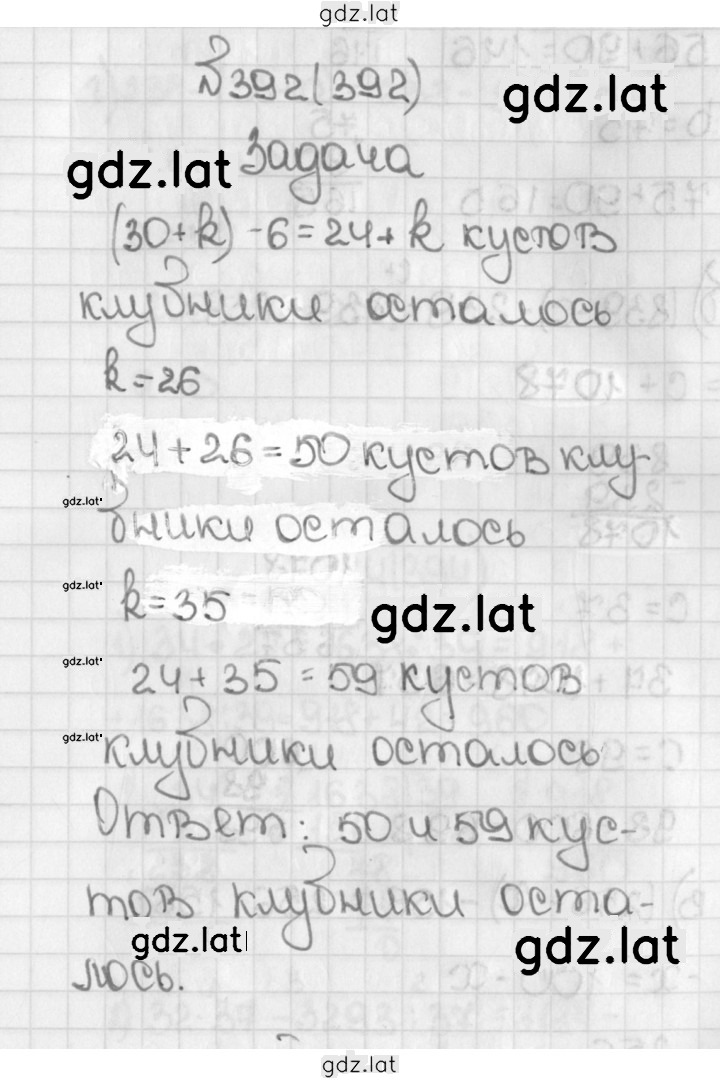 gdz.lat
№392(392)
gdz.lat
gdz.lat
Задача
(30+k)-6=24+k кустов
клубники осталось
k=26
24+26=50 кустов клу-
gdz.lat
бники осталось
gdz.lat
k=35
gdz.lat
gdz.lat
24+35=59 кустов
gdz.lat
клубники осталось
Ответ: 50 и 59 кус-
тов клубники оста-
gdz.lat
gdz.lat
лось.
gdz.lat